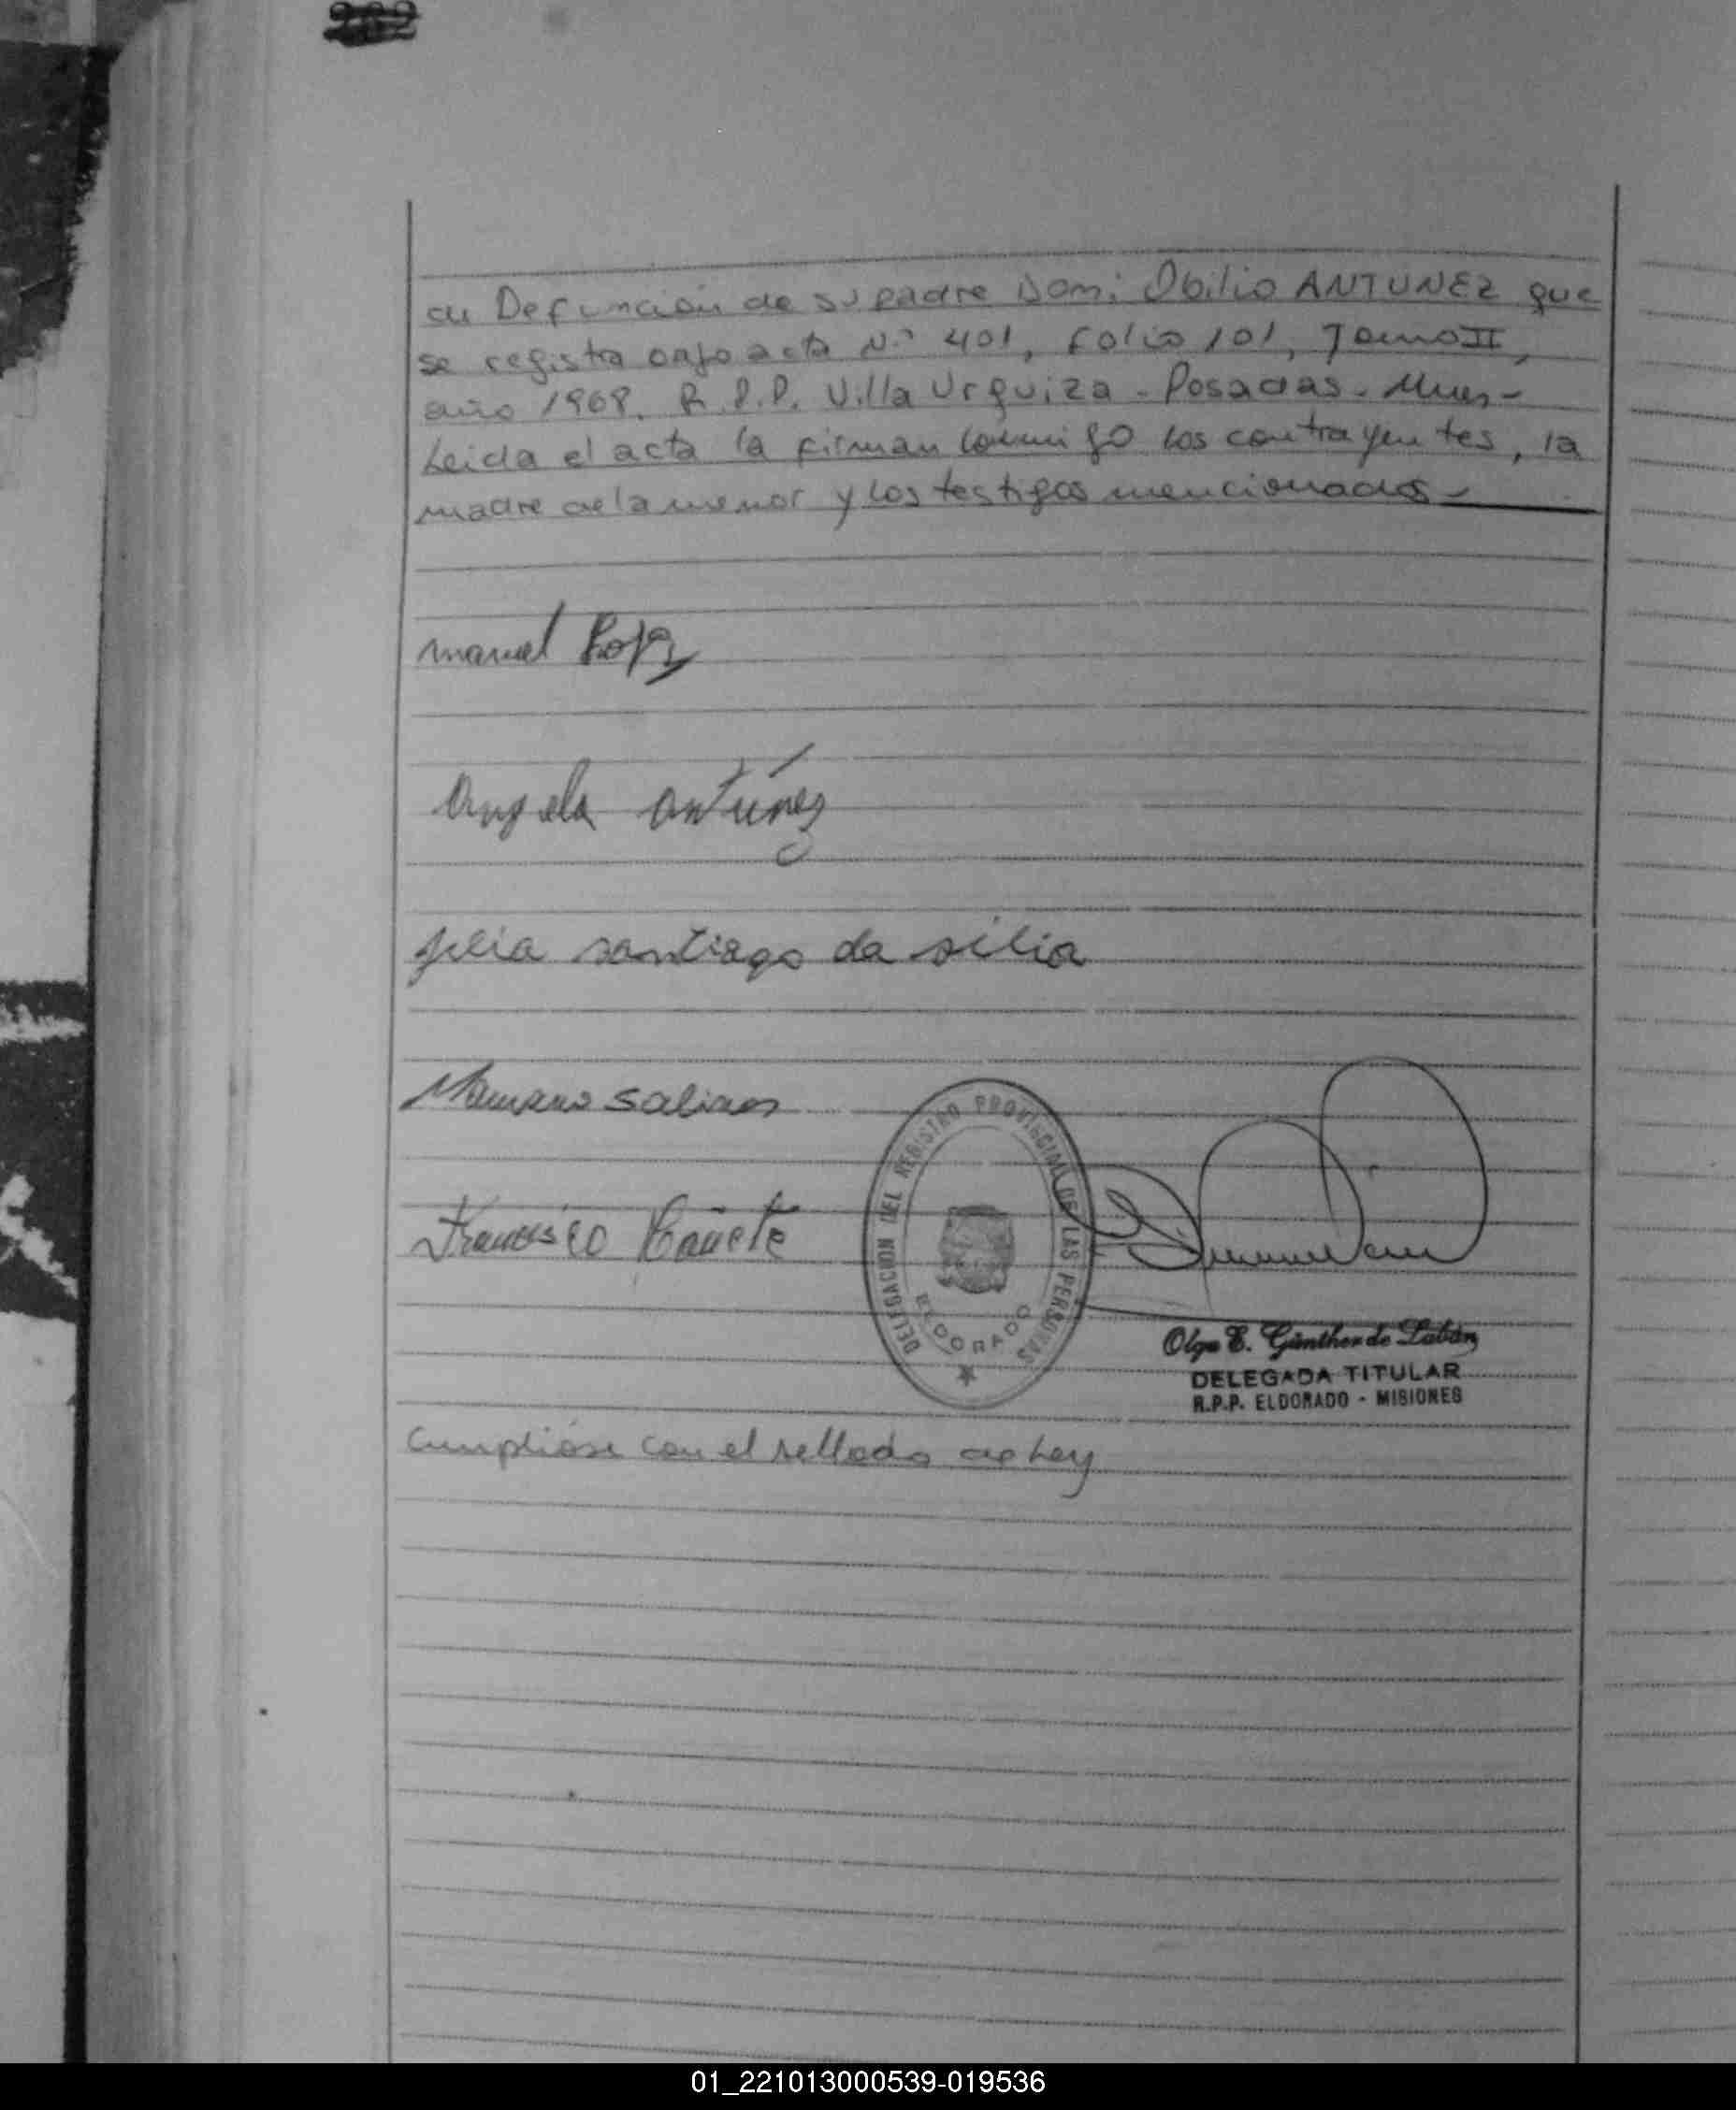 de Defunción de su padre Domi Obilio ANTUNEZ que
se registra bajo acta N.º 401, Folio 101, Tomo II,
año 1968. R.P.P. Villa Urquiza - Posadas - Mnes -
Leida el acta la firman conmigo los contrayentes, la
madre de la menor y los testigos mencionados -
manuel
Angela Antúnez
julia santiago da silia
Mariano Salinas
Francisco Cañete
DELEGACION DEL REGISTRO PROVINCIAL DE LAS PERSONAS
ELDORADO
Olga E. Günther de Labán
DELEGADA TITULAR
R.P.P. ELDORADO - MISIONES
Cumpliose con el sellado de Ley
01_221013000539-019536